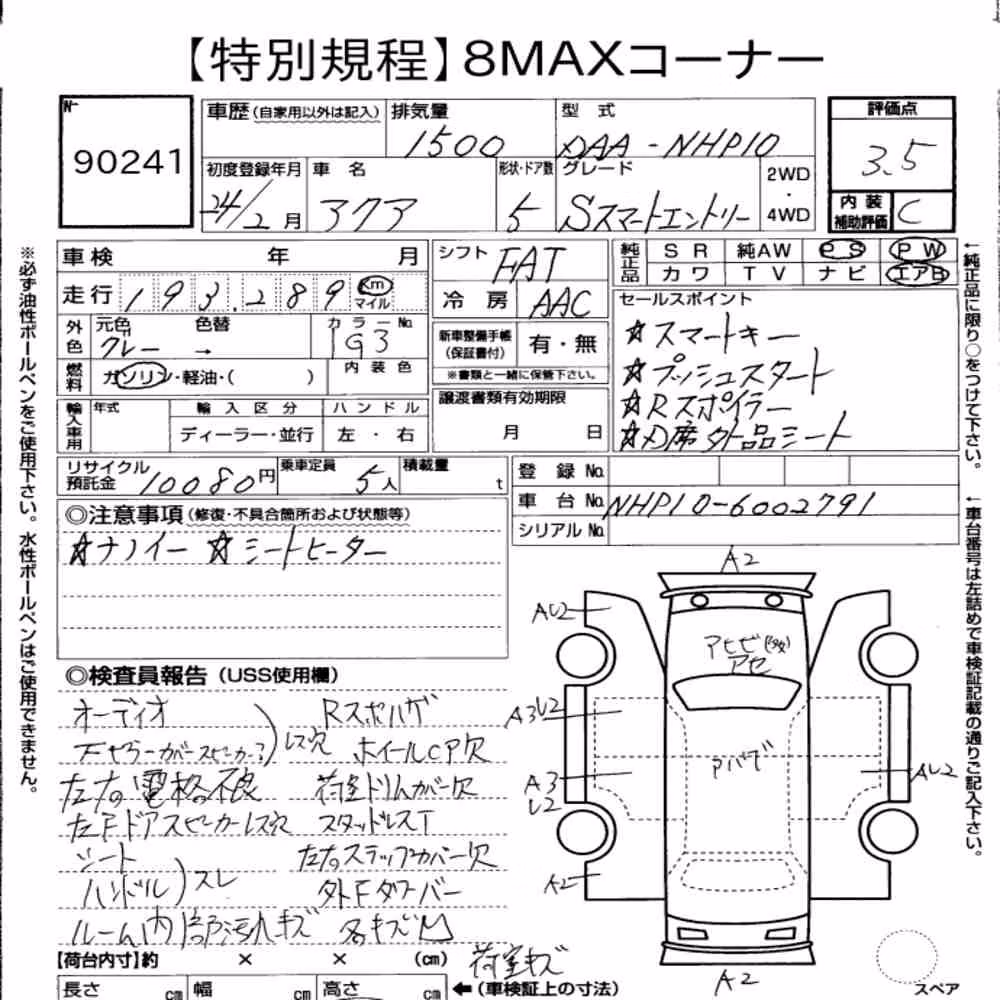 【特別規程】8MAXコーナー
No
90241
車歴(自家用以外は記入) 排気量 1500
型式 DAA-NHP10
評価点 3.5
初度登録年月 24/2月
車名 アクア
形状・ドア数 5
グレード Sスマートエントリー
2WD・4WD
内装補助評価 C
車検 年 月
走行 193,289 Km マイル
シフト FAT
冷房 AAC
純正品 SR 純AW PS PW
カワ TV ナビ エアB
外色 元色 グレー 色替 →
カラーNo. 1G3
燃料 ガソリン・軽油・( )
内装色
新車整備手帳(保証書付) 有・無
※書類と一緒に保管下さい。
セールスポイント
☆スマートキー
☆プッシュスタート
☆Rスポイラー
☆D席外品シート
輸入車用 年式 輸入区分 ハンドル
ディーラー・並行 左・右
譲渡書類有効期限
月 日
リサイクル預託金 10080円
乗車定員 5人
積載量 t
登録No.
車台No. NHP10-6002791
シリアルNo.
◎注意事項(修復・不具合箇所および状態等)
☆ナノイー ☆シートヒーター
◎検査員報告(USS使用欄)
オーディオ
レス穴
左右電格不良
左FドアスピーカーレスR穴
シート
ハンドル)スレ
ルーム内 部汚れキズ
Rスポハゲ
ホイールCアP欠
荷室トリムカバー欠
スタッドレスT
左右ステップカバー欠
外Fタワーバー
各キズ凹
荷室キズ
A2
AU2
A3U2
A3
U2
A2
アヒビ(多数)
アセ
アハゲ
AU2
A2
【荷台内寸】約 × × (cm)
長さ cm 幅 cm 高さ cm
←(車検証上の寸法)
スペア
※必ず油性ボールペンをご使用下さい。水性ボールペンはご使用できません。
←純正品に限り○をつけて下さい。
←車台番号は左詰めで車検証記載の通りご記入下さい。